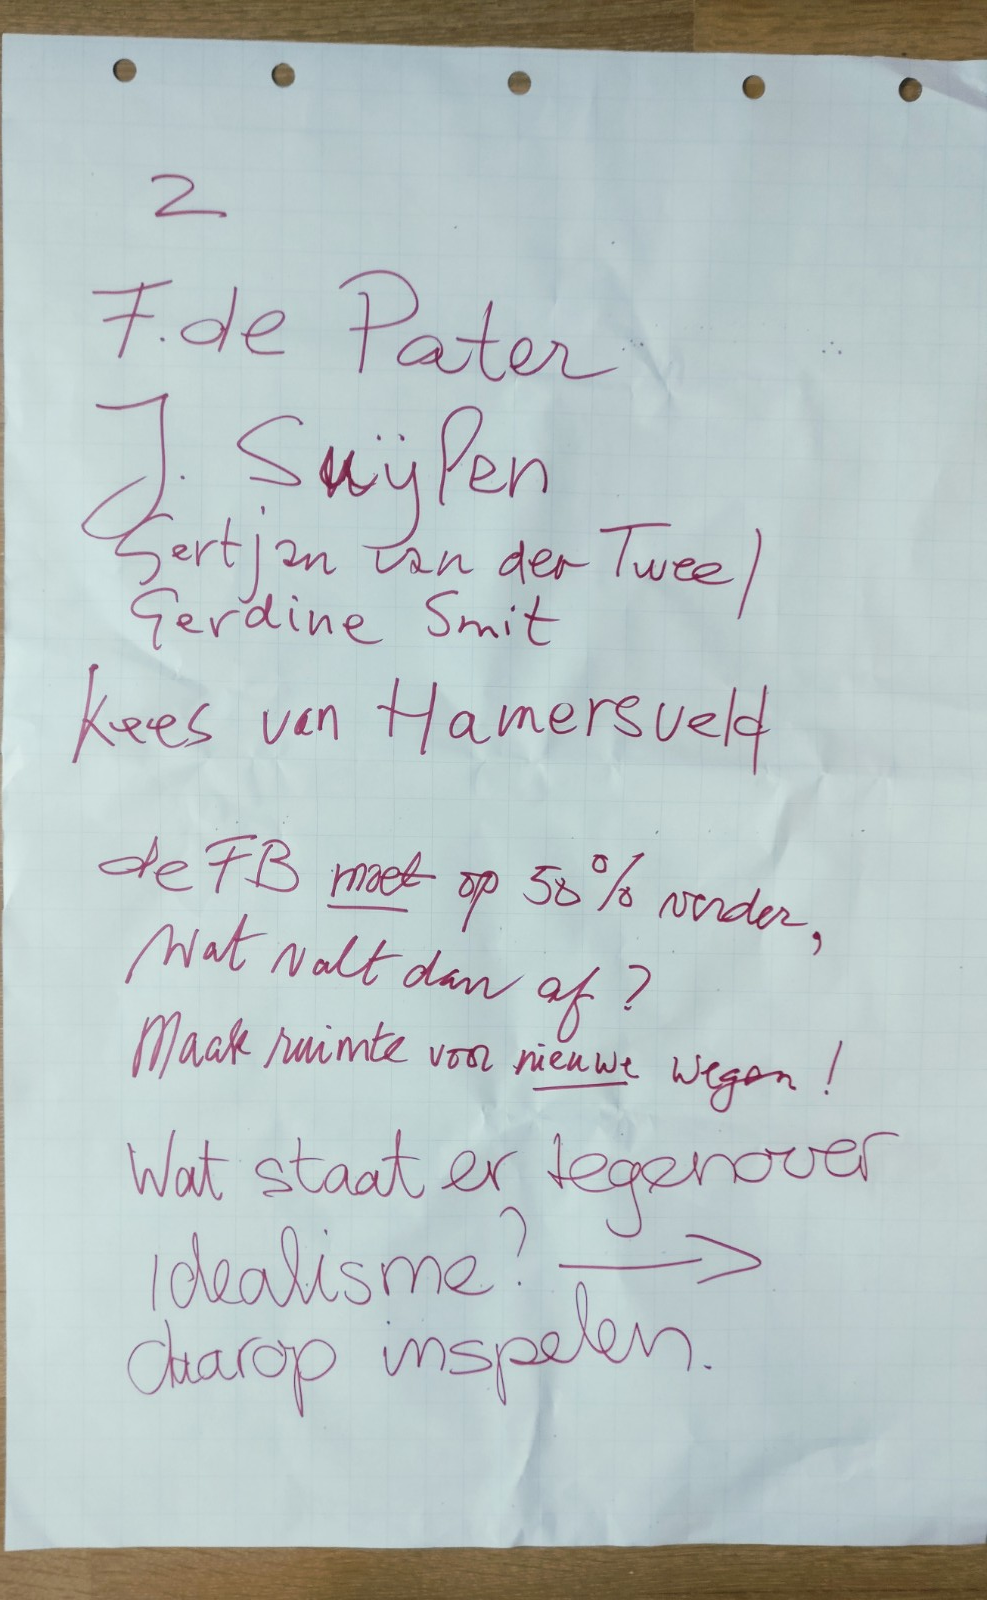 2
F. de Pater
J. Suijlen
Gertjan van der Tweel
Gerdine Smit
Kees van Hamersveld
de FB moet op 50% verder,
Wat valt dan af?
Maak ruimte voor nieuwe wegen!
Wat staat er tegenover
idealisme? →
daarop inspelen.